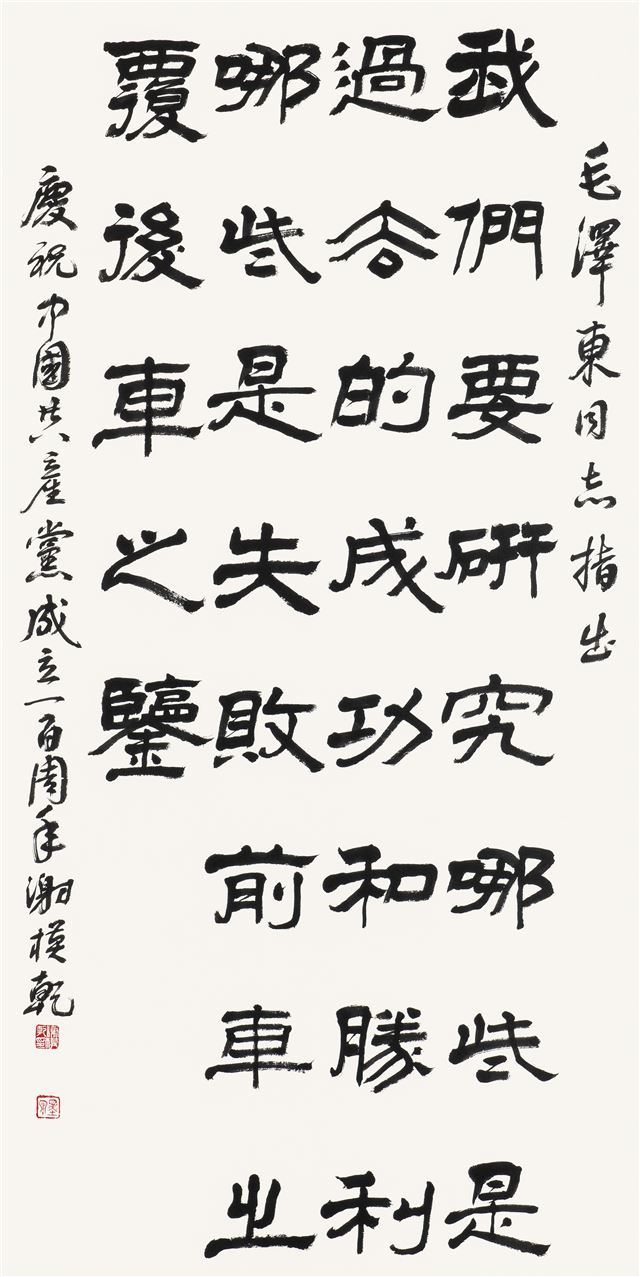 毛澤東同志指出
我們要研究哪些是
過去的成功和勝利
哪些是失敗前車之
覆後車之鑒
慶祝中國共產黨成立一百周年謝模乾